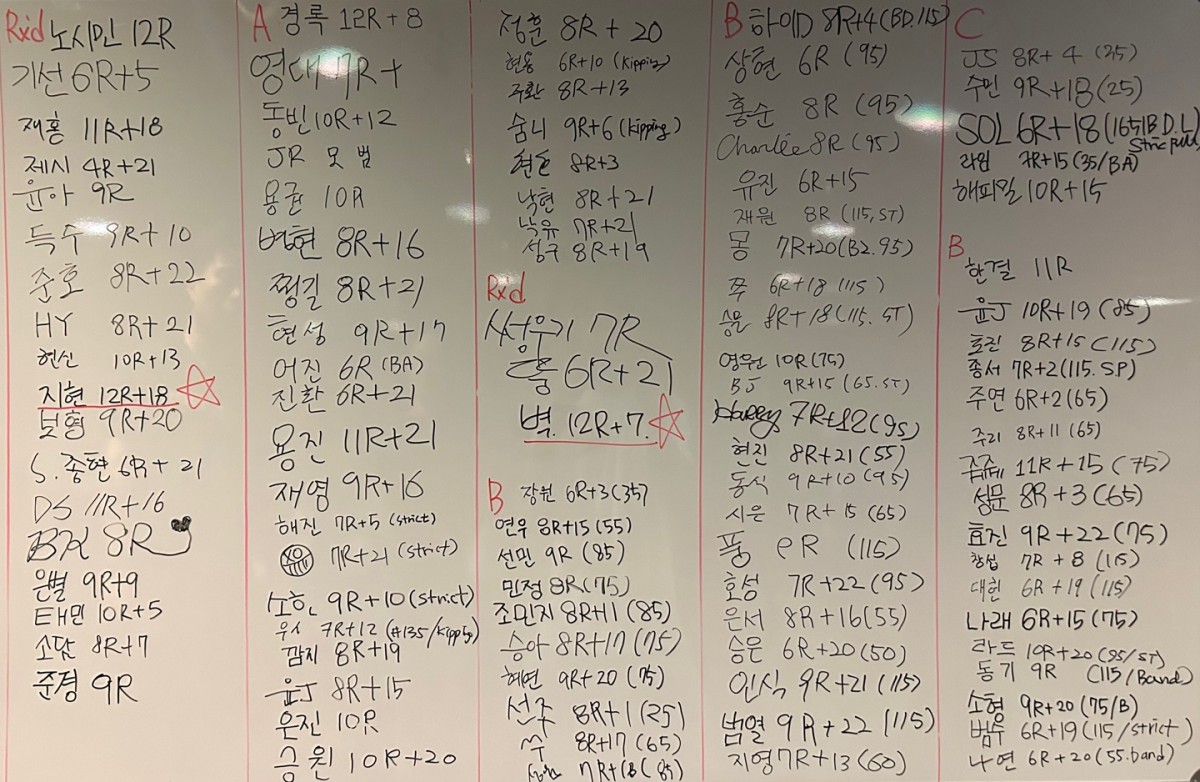 Rxd 노시민 12R
기선 6R+5
재홍 11R+18
제시 4R+21
윤아 9R
득수 9R+10
준호 8R+22
HY 8R+21
현신 10R+13
지현 12R+18
보형 9R+20
S.종현 6R+21
DS 11R+16
BK 8R
은별 9R+9
태민 10R+5
소담 8R+7
준경 9R
A 경록 12R+8
영대 7R+
동빈 10R+12
JR 모범
용균 10R
병현 8R+16
찡길 8R+21
현성 9R+17
어진 6R (BA)
진환 6R+21
용진 11R+21
재영 9R+16
해진 7R+5 (strict)
7R+21 (strict)
소한 9R+10 (strict)
우시 7R+12 (#135/kipping)
깜지 8R+19
윤J 8R+15
은진 10R
승원 10R+20
정훈 8R+20
현용 6R+10 (kipping)
주환 8R+13
숨니 9R+6 (kipping)
현준 8R+3
낙현 8R+21
낙유 7R+21
성구 8R+19
Rxd
성우기 7R
롱 6R+21
벽. 12R+7.
B 장원 6R+3 (35)
연우 8R+15 (55)
선민 9R (85)
민정 8R (75)
조민지 8R+1 (85)
승아 8R+17 (75)
혜연 9R+20 (75)
선주 8R+1 (25)
쑤 8R+17 (65)
7R+18 (85)
B 하이D 8R+4 (BD.115)
상현 6R (95)
홍순 8R (95)
Charlie 8R (95)
유진 6R+15
재원 8R (115, ST)
몽 7R+20 (B2.95)
쭈 6R+18 (115)
승윤 8R+18 (115.ST)
영원 10R (75)
BJ 9R+15 (65.ST)
Harry 7R+12 (95)
현진 8R+21 (55)
동식 9R+10 (95)
시은 7R+15 (65)
풍 8R (115)
호성 7R+22 (95)
은서 8R+16 (55)
승은 6R+20 (50)
인식 9R+21 (115)
범열 9R+22 (115)
지영 7R+13 (60)
C
JS 8R+4 (25)
수민 9R+18 (25)
SOL 6R+18 (165lB D.L)
Stric pull
라임 7R+15 (35/BA)
해피밀 10R+15
B
한결 11R
윤J 10R+19 (85)
효진 8R+15 (115)
종서 7R+2 (115.SP)
주연 6R+2 (65)
주리 8R+11 (65)
11R+15 (75)
성문 8R+3 (65)
효진 9R+22 (75)
창섭 7R+8 (115)
대현 6R+19 (115)
나래 6R+15 (75)
라드 10R+20 (95/ST)
동기 9R (115/Band)
소형 9R+20 (75/B)
범우 6R+19 (115/strict)
나연 6R+20 (55.band)